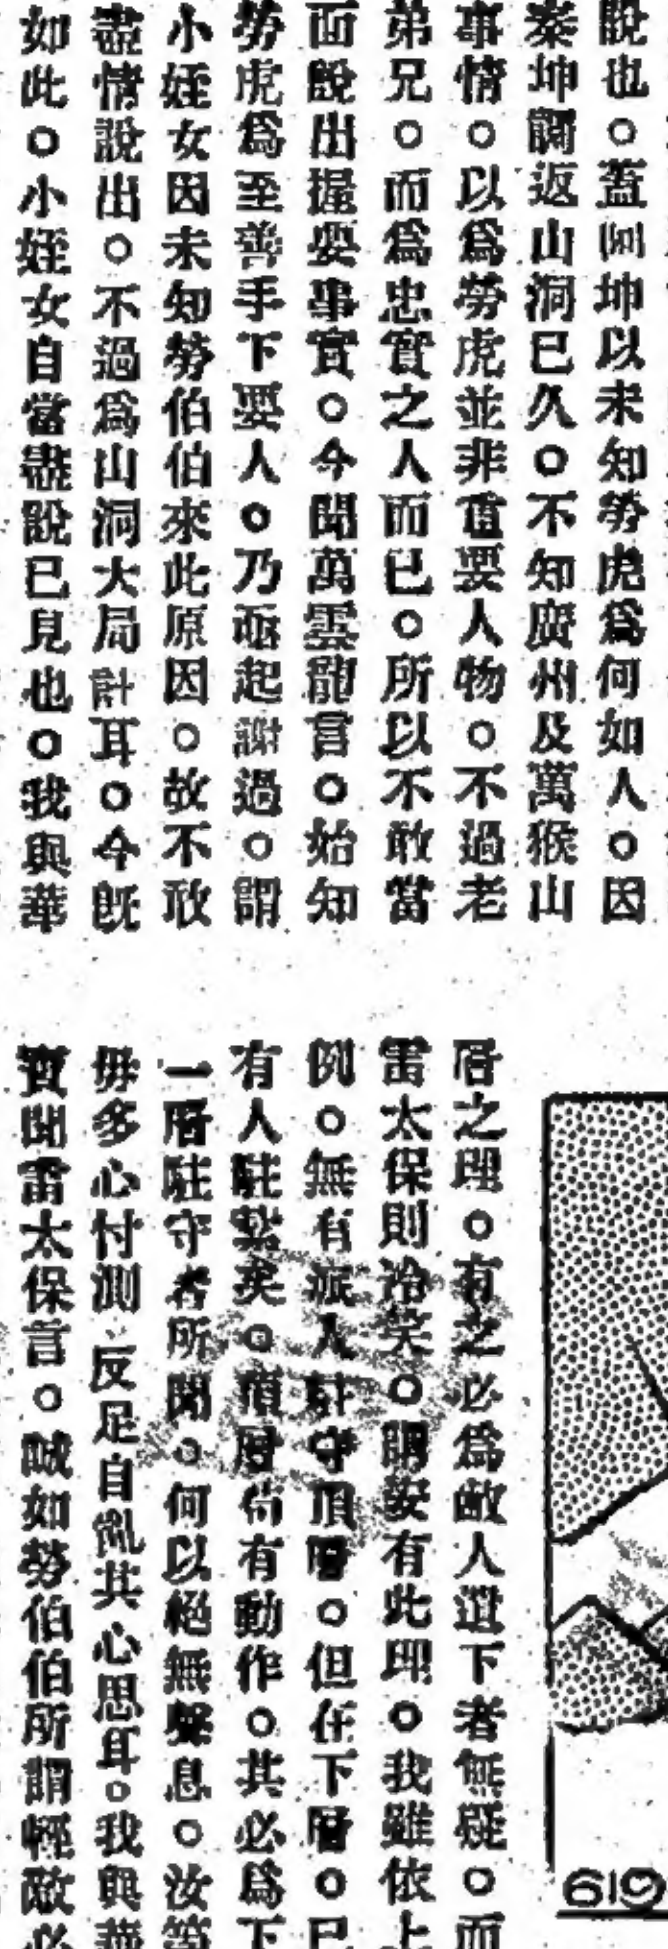 說也。蓋因坤以未知勞虎爲何如人。因
秦坤關返山洞已久。不知廣州及萬猴山
事情。以爲勞虎並非重要人物。不過老
弟兄。而爲忠實之人而已。所以不敢當
面說出握要事實。今聞萬雲龍言。始知
勞虎爲至善手下要人。乃亟起謝過。謂
小姪女因未知勞伯伯來此原因。故不敢
盡情說出。不過爲山洞大局計耳。今既
如此。小姪女自當盡說已見也。我與華
層之理。有之必爲敵人遺下者無疑。而
雷太保則冷笑。謂安有此理。我雖依上
例。無有派人駐守頂層。但在下層。已
有人駐紮矣。頂層倘有動作。其必爲下
一層駐守者所聞。何以絕無聲息。汝等
毋多心忖測。反足自亂其心思耳。我與華
寶聞雷太保言。誠如勞伯伯所謂輕敵必
619